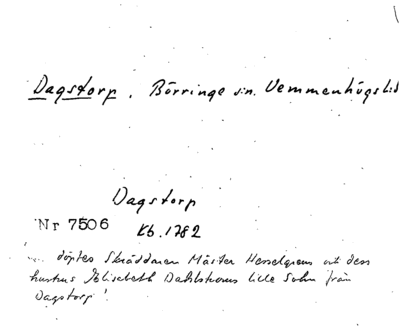 Dagstorp. Börringe sn. Vemmenhögs hd
Dagstorp
Nr 7506
Kb. 1782
... döptes Skräddaren Mäster Hesselgrens och dess
hustrus Elisabeth Dahlstroms lille Sohn från
Dagstorp